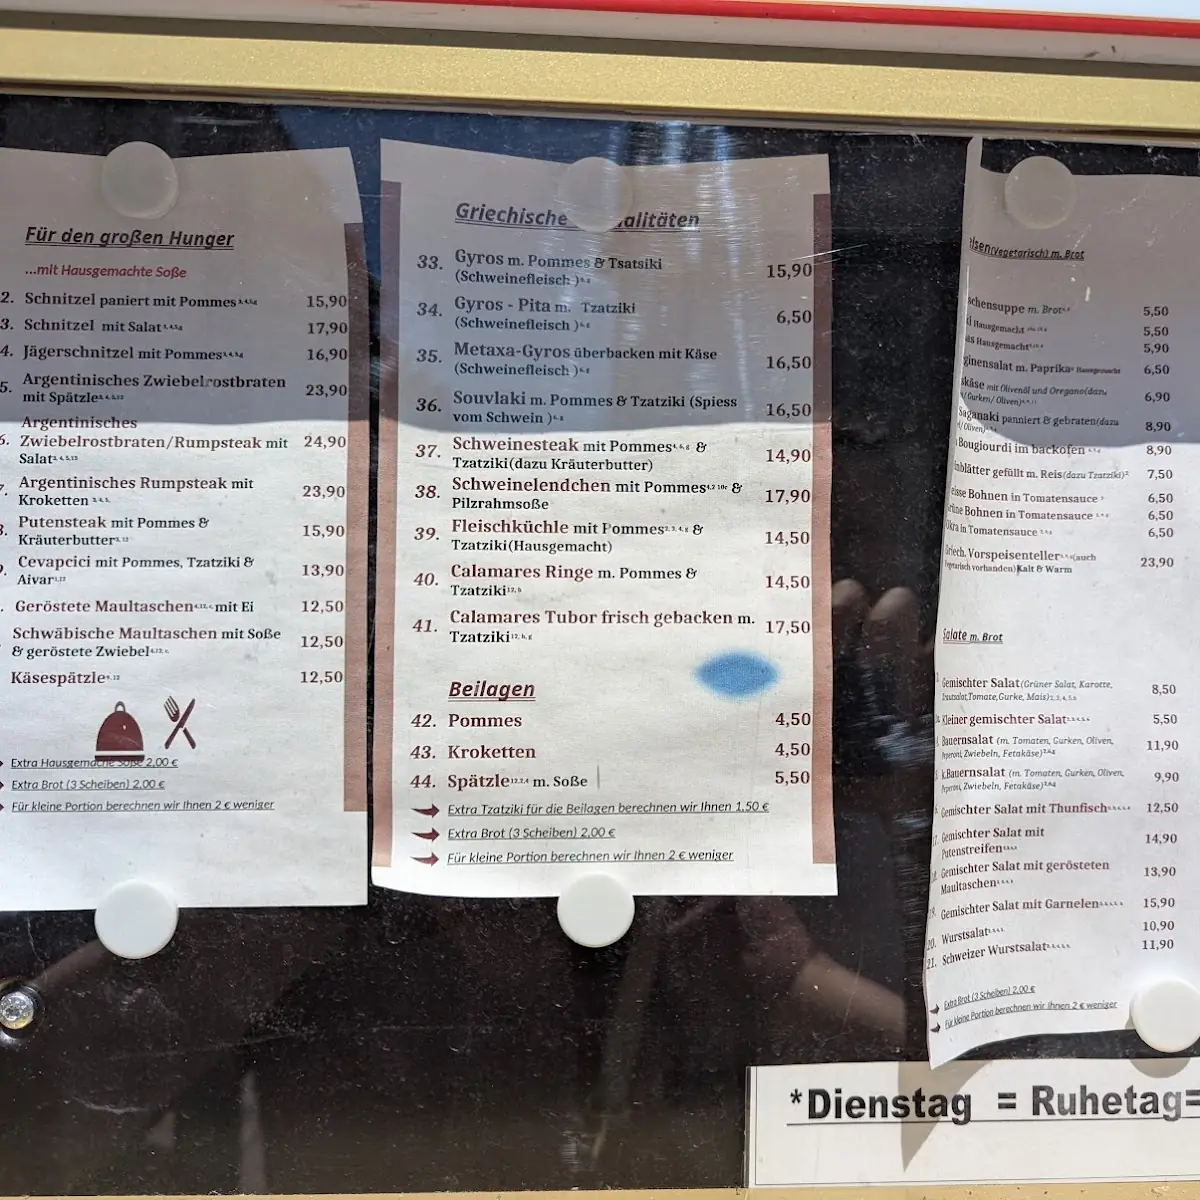 Für den großen Hunger
...mit Hausgemachte Soße
2. Schnitzel paniert mit Pommes 15,90
3. Schnitzel mit Salat 17,90
4. Jägerschnitzel mit Pommes 16,90
5. Argentinisches Zwiebelrostbraten
mit Spätzle 23,90
Argentinisches
6. Zwiebelrostbraten/Rumpsteak mit 24,90
Salat
7. Argentinisches Rumpsteak mit
Kroketten 23,90
8. Putensteak mit Pommes &
Kräuterbutter 15,90
Cevapcici mit Pommes, Tzatziki &
Aivar 13,90
Geröstete Maultaschen mit Ei 12,50
Schwäbische Maultaschen mit Soße
& geröstete Zwiebel 12,50
Käsespätzle 12,50
Extra Hausgemachte Soße 2,00 €
Extra Brot (3 Scheiben) 2,00 €
Für kleine Portion berechnen wir Ihnen 2 € weniger
Griechische alitäten
33. Gyros m. Pommes & Tsatsiki
(Schweinefleisch ) 15,90
34. Gyros - Pita m. Tzatziki
(Schweinefleisch ) 6,50
35. Metaxa-Gyros überbacken mit Käse
(Schweinefleisch ) 16,50
36. Souvlaki m. Pommes & Tzatziki (Spiess
vom Schwein ) 16,50
37. Schweinesteak mit Pommes &
Tzatziki(dazu Kräuterbutter) 14,90
38. Schweinelendchen mit Pommes &
Pilzrahmsoße 17,90
39. Fleischküchle mit Pommes &
Tzatziki(Hausgemacht) 14,50
40. Calamares Ringe m. Pommes &
Tzatziki 14,50
41. Calamares Tubor frisch gebacken m.
Tzatziki 17,50
Beilagen
42. Pommes 4,50
43. Kroketten 4,50
44. Spätzle m. Soße 5,50
Extra Tzatziki für die Beilagen berechnen wir Ihnen 1,50 €
Extra Brot (3 Scheiben) 2,00 €
Für kleine Portion berechnen wir Ihnen 2 € weniger
eisen(vegetarisch) m. Brot
schensuppe m. Brot 5,50
ki Hausgemacht 5,50
as Hausgemacht 5,90
ginensalat m. Paprika Hausgemacht 6,50
skäse mit Olivenöl und Oregano(dazu
/ Gurken/ Oliven) 6,90
Saganaki panniert & gebraten(dazu
/Oliven) 8,90
Bougiourdi im backofen 8,90
nblätter gefüllt m. Reis(dazu Tzatziki) 7,50
eisse Bohnen in Tomatensauce 6,50
rüne Bohnen in Tomatensauce 6,50
Okra in Tomatensauce 6,50
Griech. Vorspeisenteller(auch
vegetarisch vorhanden)Kalt & Warm 23,90
Salate m. Brot
Gemischter Salat(Grüner Salat, Karotte,
Krautsalat,Tomate,Gurke, Mais) 8,50
Kleiner gemischter Salat 5,50
Bauernsalat (m. Tomaten, Gurken, Oliven,
Peperoni, Zwiebeln, Fetakäse) 11,90
k.Bauernsalat (m. Tomaten, Gurken, Oliven,
Peperoni, Zwiebeln, Fetakäse) 9,90
Gemischter Salat mit Thunfisch 12,50
Gemischter Salat mit
Putenstreifen 14,90
Gemischter Salat mit gerösteten
Maultaschen 13,90
19. Gemischter Salat mit Garnelen 15,90
20. Wurstsalat 10,90
21. Schweizer Wurstsalat 11,90
Extra Brot (3 Scheiben) 2,00 €
Für kleine Portion berechnen wir Ihnen 2 € weniger
*Dienstag = Ruhetag=